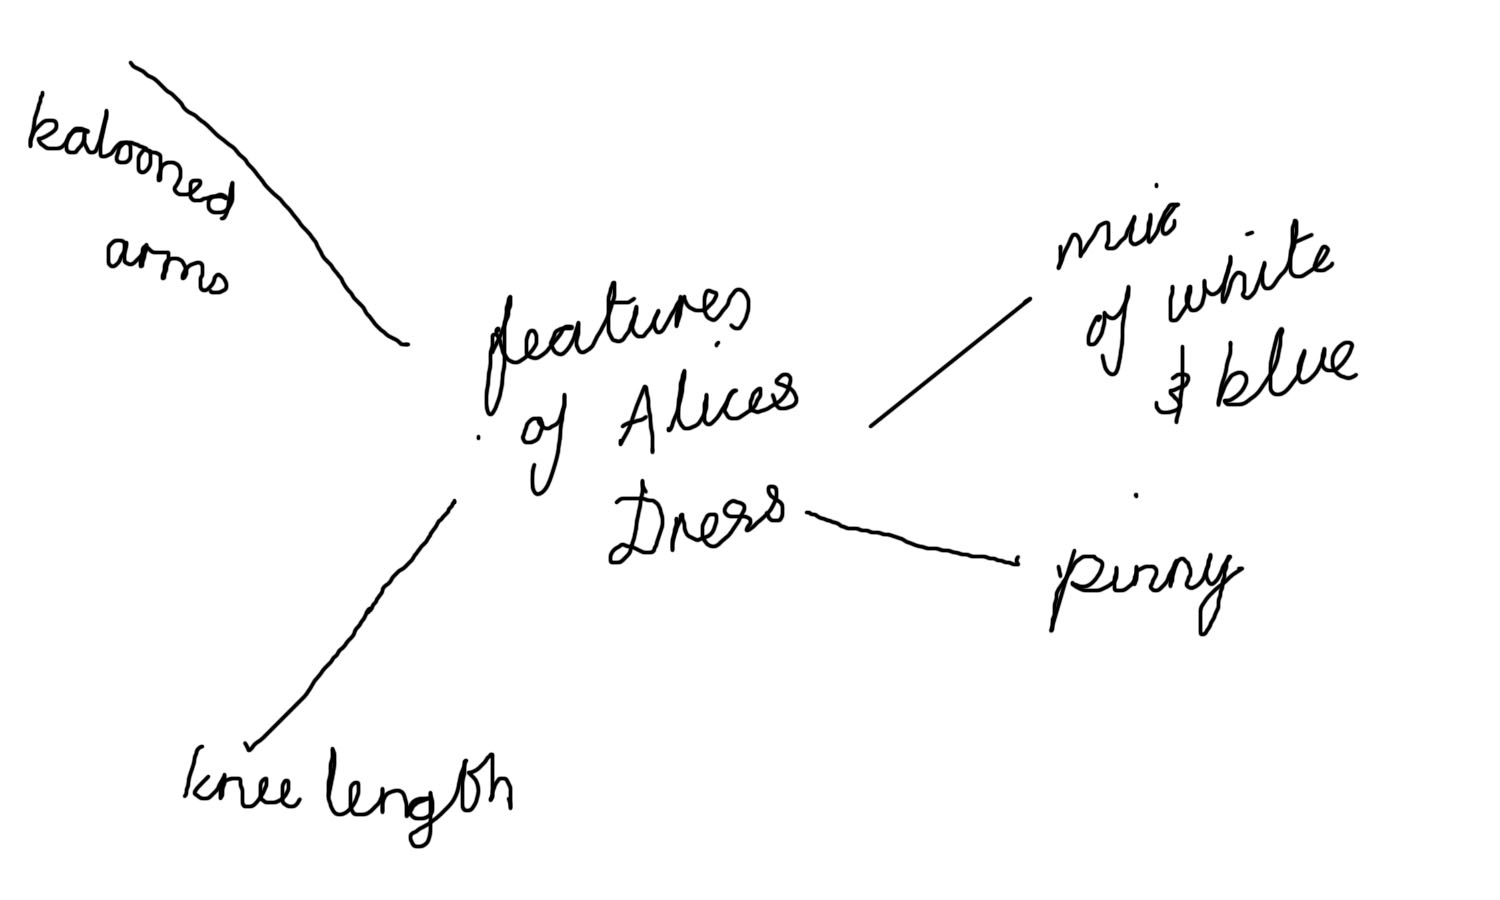 kalooned
arms
features
of Alices
Dress
mix
of white
& blue
pinny
knee length